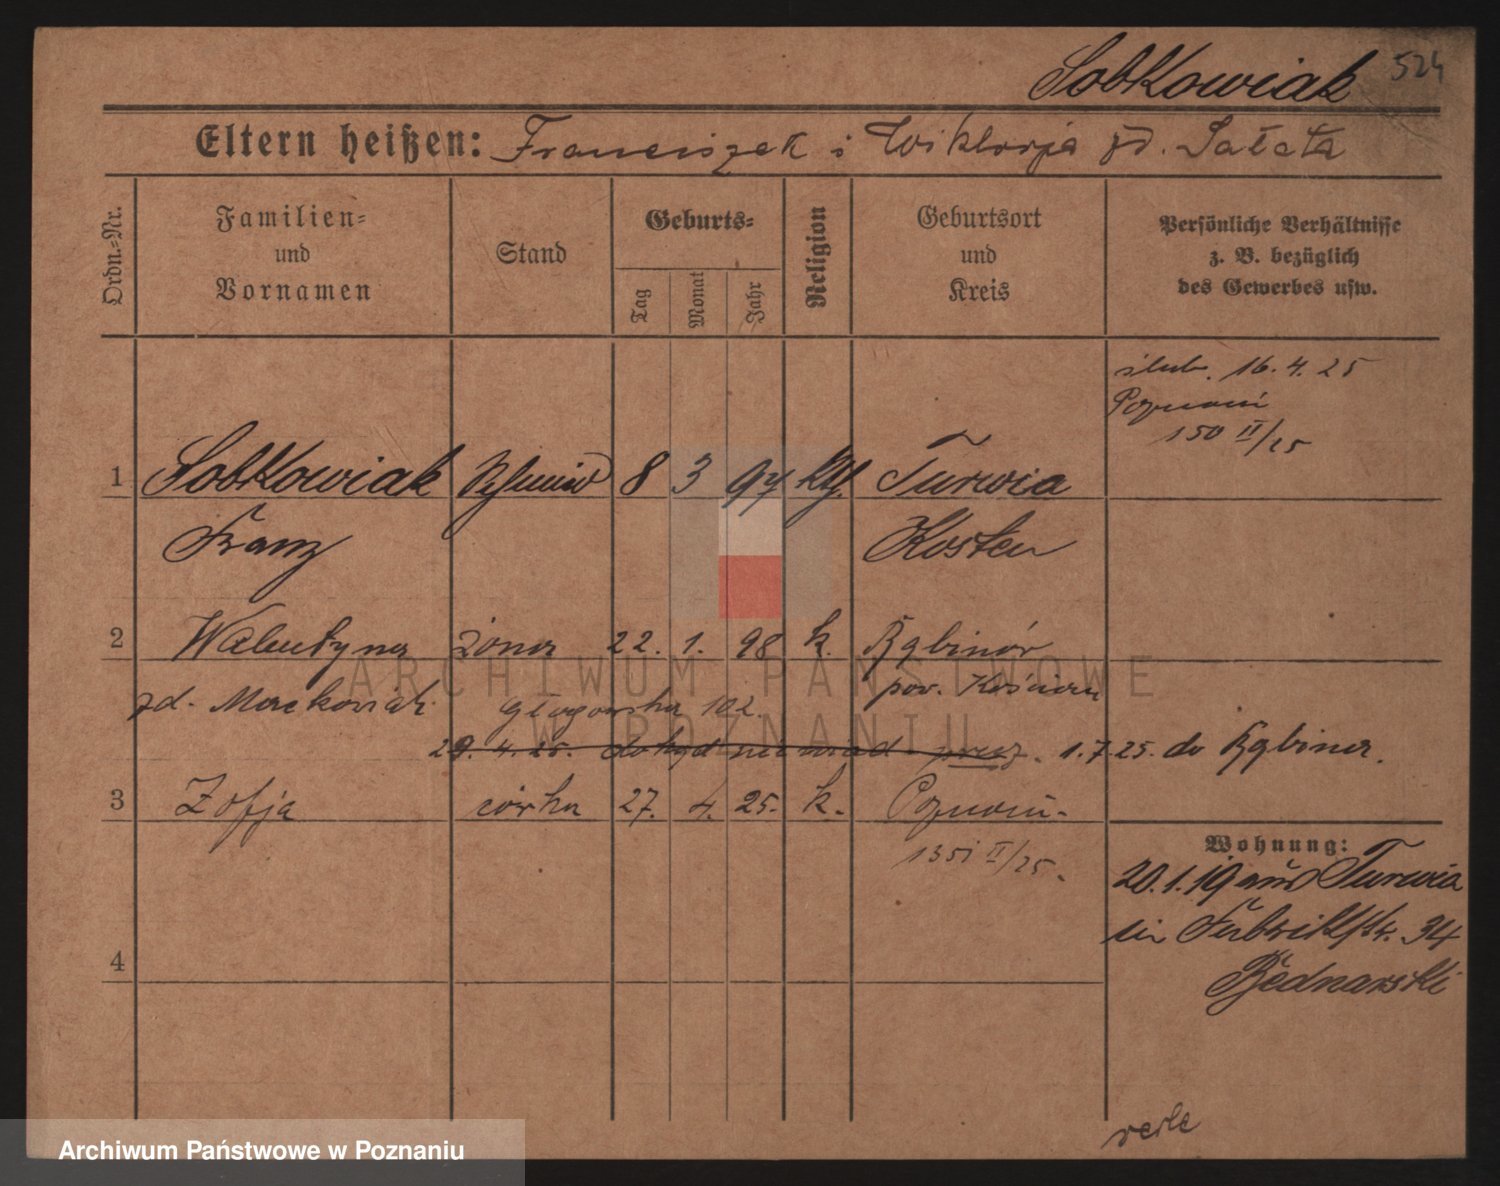 Sobkowiak 524
Eltern heißen: Franciszek i Wiktorja zd. Sałata
Ordn.-Nr.
Familien-
und
Vornamen
Stand
Geburts-
Tag
Monat
Jahr
Religion
Geburtsort
und
Kreis
Persönliche Verhältnisse
z. B. bezüglich
des Gewerbes usw.
ślub. 16. 4. 25
Poznań
150 II/25
1 Sobkowiak 8 3 97 kth. Turwia
Franz Kosten
2 Walentyna żona 22. 1. 98 k. Rąbinów
zd. Maćkowiak pow. Kościan
Głogowska 102
29. 4. 25. 1. 7. 25. do Rąbina.
3 Zofja córka 27. 4. 25. k. Poznań.
1351 II/25.
Wohnung:
20. 1. 19 aus Turwia
in Fabrikstr. 34
Bednarski
4
verte
ARCHIWUM PAŃSTWOWE
W POZNANIU
Archiwum Państwowe w Poznaniu